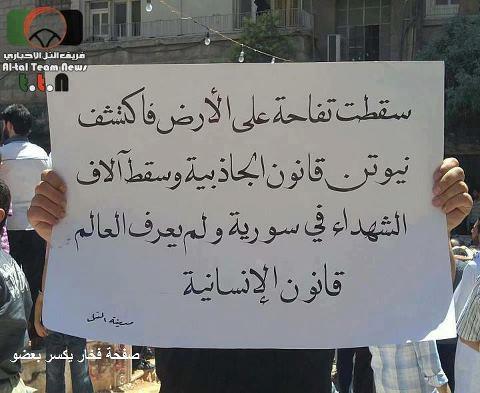 فريق التل الاخباري
Al-tal Team News
t.t.n
سقطت تفاحة على الأرض فاكتشف
نيوتن قانون الجاذبية وسقط آلاف
الشهداء في سورية ولم يعرف العالم
قانون الإنسانية
مدينة التل
صفحة فخار يكسر بعضو